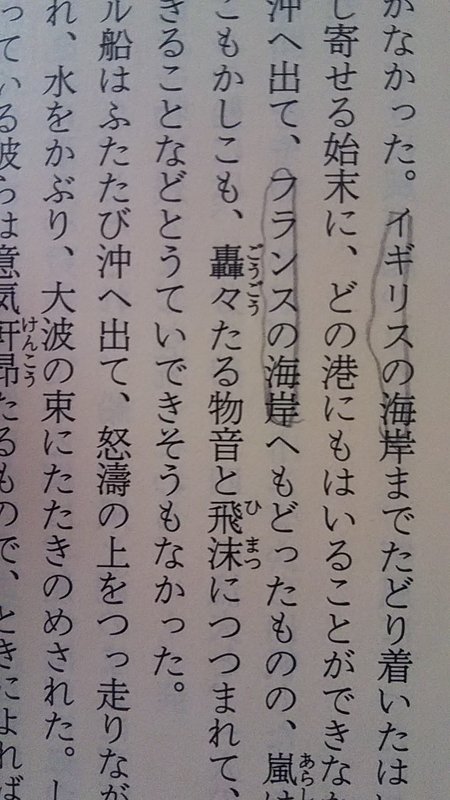 がなかった。イギリスの海岸までたどり着いたは
し寄せる始末に、どの港にもはいることができなか
沖へ出て、フランスの海岸へもどったものの、嵐は
こもかしこも、轟々たる物音と飛沫につつまれて、
きることなどとうていできそうもなかった。
ル船はふたたび沖へ出て、怒濤の上をつっ走りなが
れ、水をかぶり、大波の束にたたきのめされた。し
っている彼らは意気軒昂たるもので、ときによれば